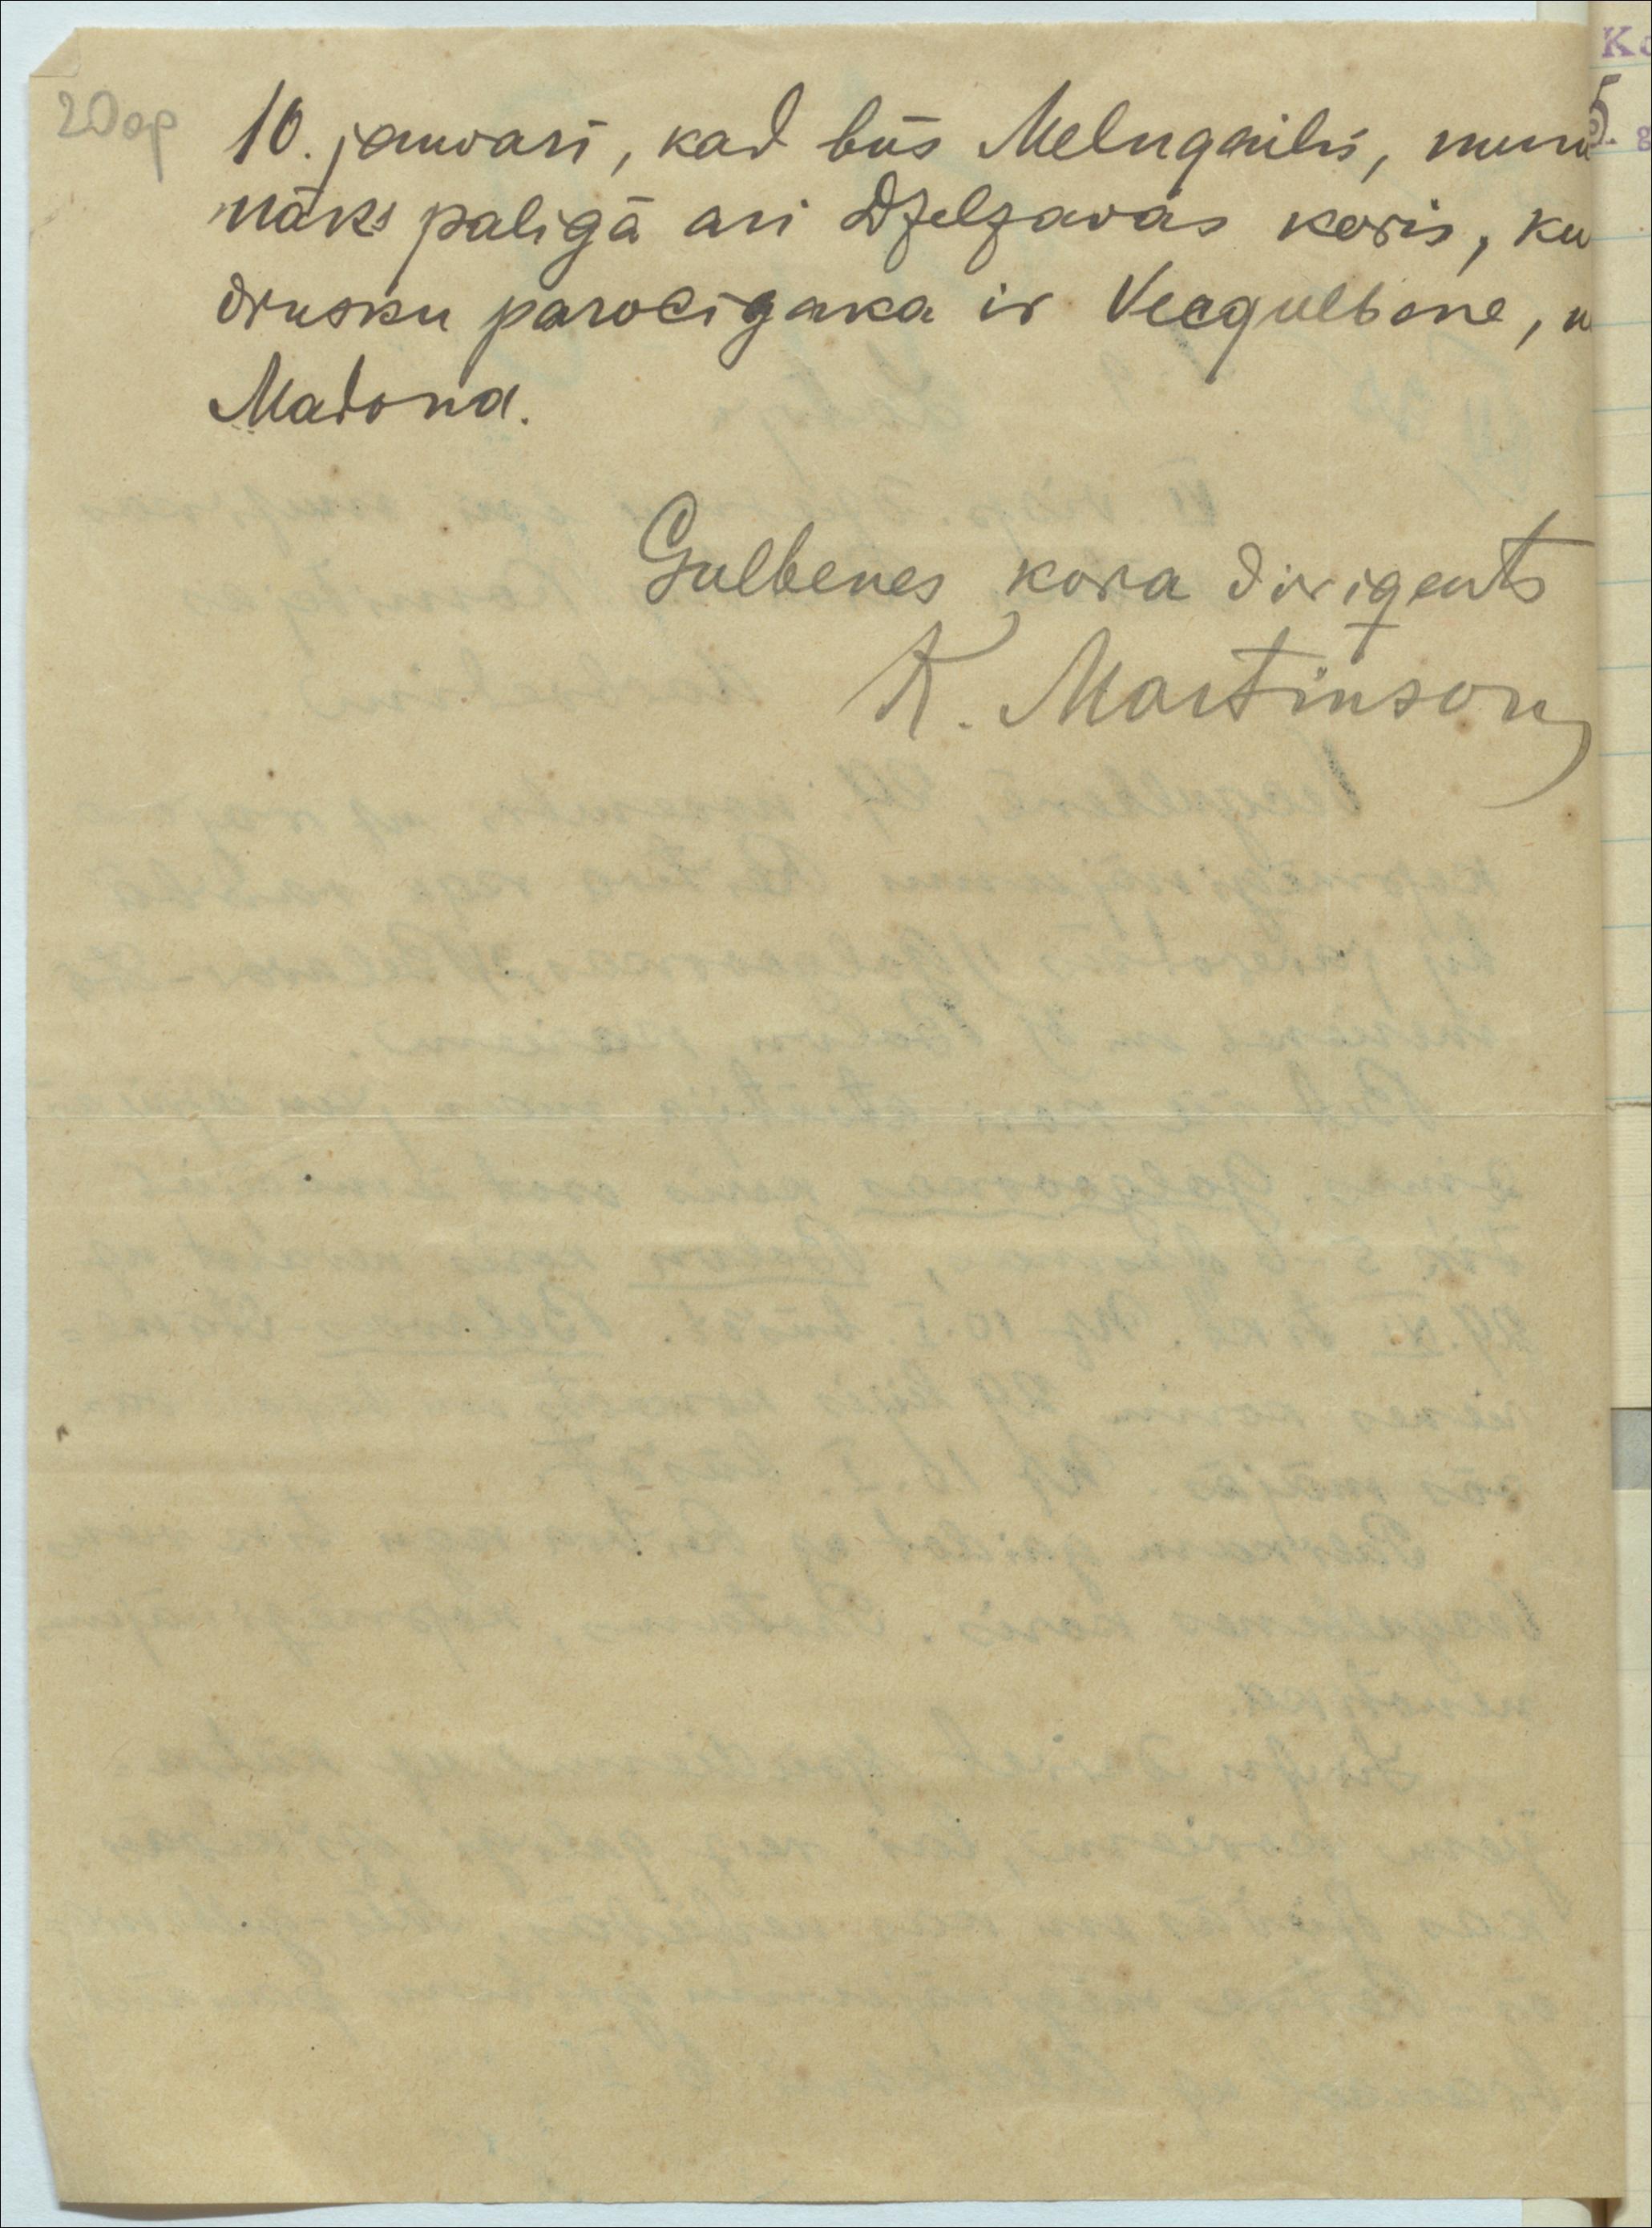 20op
10. janvarī, kad būs Melngailis, mums
nāks paligā ari Dzelzavas koris,
drusku parocigaka ir Vecgulbene,
Madona.
Gulbenes kora dirigents
K. Martinsons